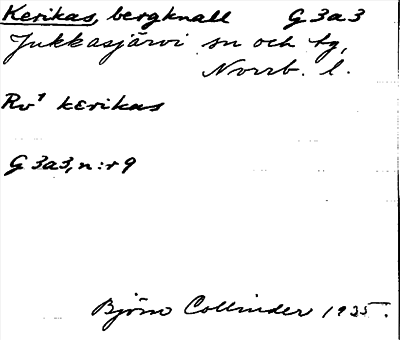 Kerikas, bergknall G3a3
Jukkasjärvi sn och tg,
Norrb. l.
Rv¹ kerikas
G3a3, n:r 9
Björn Collinder 1935.